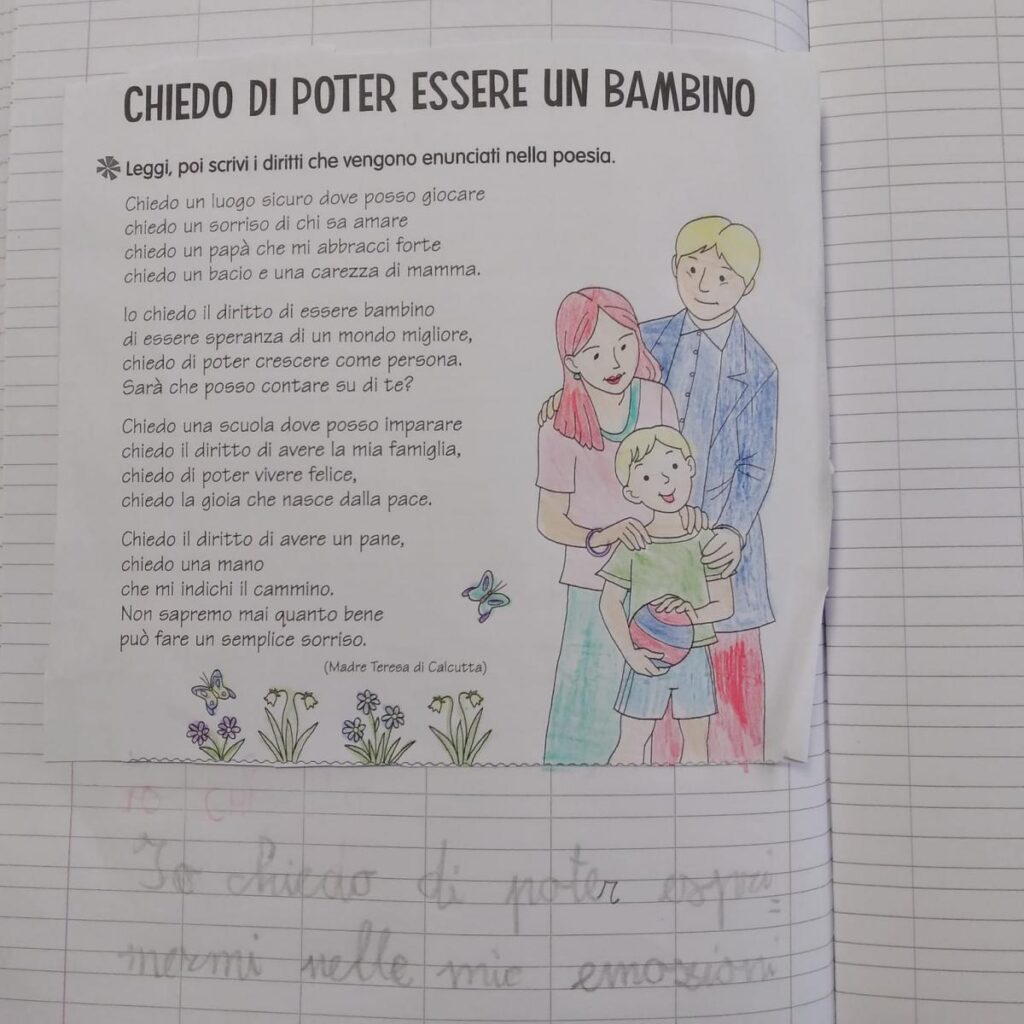 CHIEDO DI POTER ESSERE UN BAMBINO
Leggi, poi scrivi i diritti che vengono enunciati nella poesia.
Chiedo un luogo sicuro dove posso giocare
chiedo un sorriso di chi sa amare
chiedo un papà che mi abbracci forte
chiedo un bacio e una carezza di mamma.
Io chiedo il diritto di essere bambino
di essere speranza di un mondo migliore,
chiedo di poter crescere come persona.
Sarà che posso contare su di te?
Chiedo una scuola dove posso imparare
chiedo il diritto di avere la mia famiglia,
chiedo di poter vivere felice,
chiedo la gioia che nasce dalla pace.
Chiedo il diritto di avere un pane,
chiedo una mano
che mi indichi il cammino.
Non sapremo mai quanto bene
può fare un semplice sorriso.
(Madre Teresa di Calcutta)
Io chiedo di poter espri=
mermi nelle mie emozioni